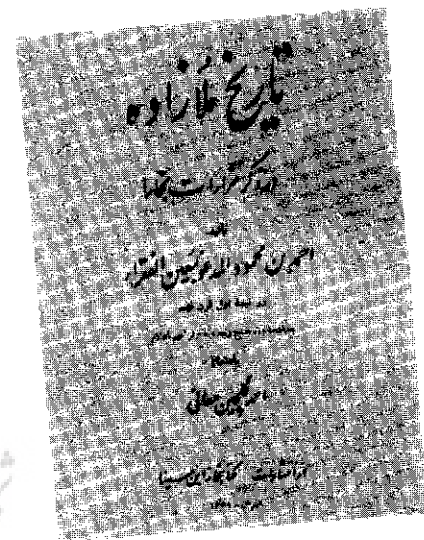 تاریخ ملازاده
در ذکر مزارات بخارا
تألیف
احمد بن محمود المدعو بمعین الفقرا
در نیمهٔ اول قرن نهم
باهتمام
احمد گلچین معانی
از انتشارات کتابخانه ابن سینا